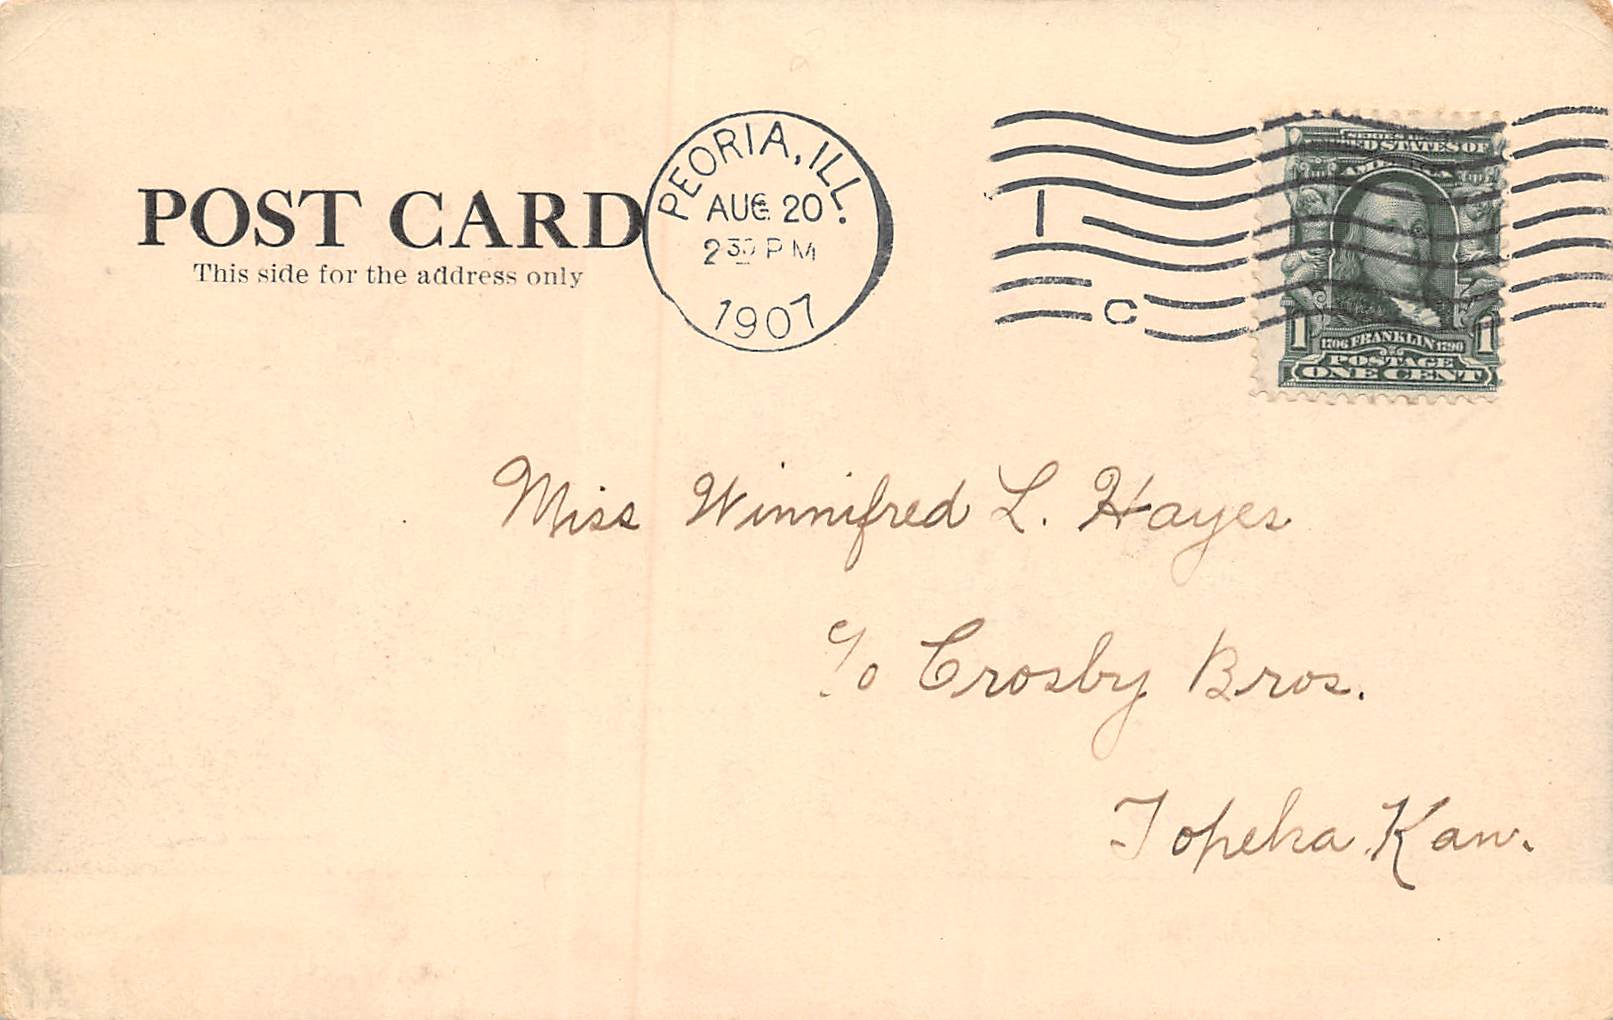 POST CARD
This side for the address only
PEORIA, ILL.
AUG 20
2 30 PM
1907
1
C
SERIES
STATES OF
AMERICA
1 1706 FRANKLIN 1790 1
POSTAGE
ONE CENT
Miss Winnifred L. Hayes
c/o Crosby Bros.
Topeka Kan.